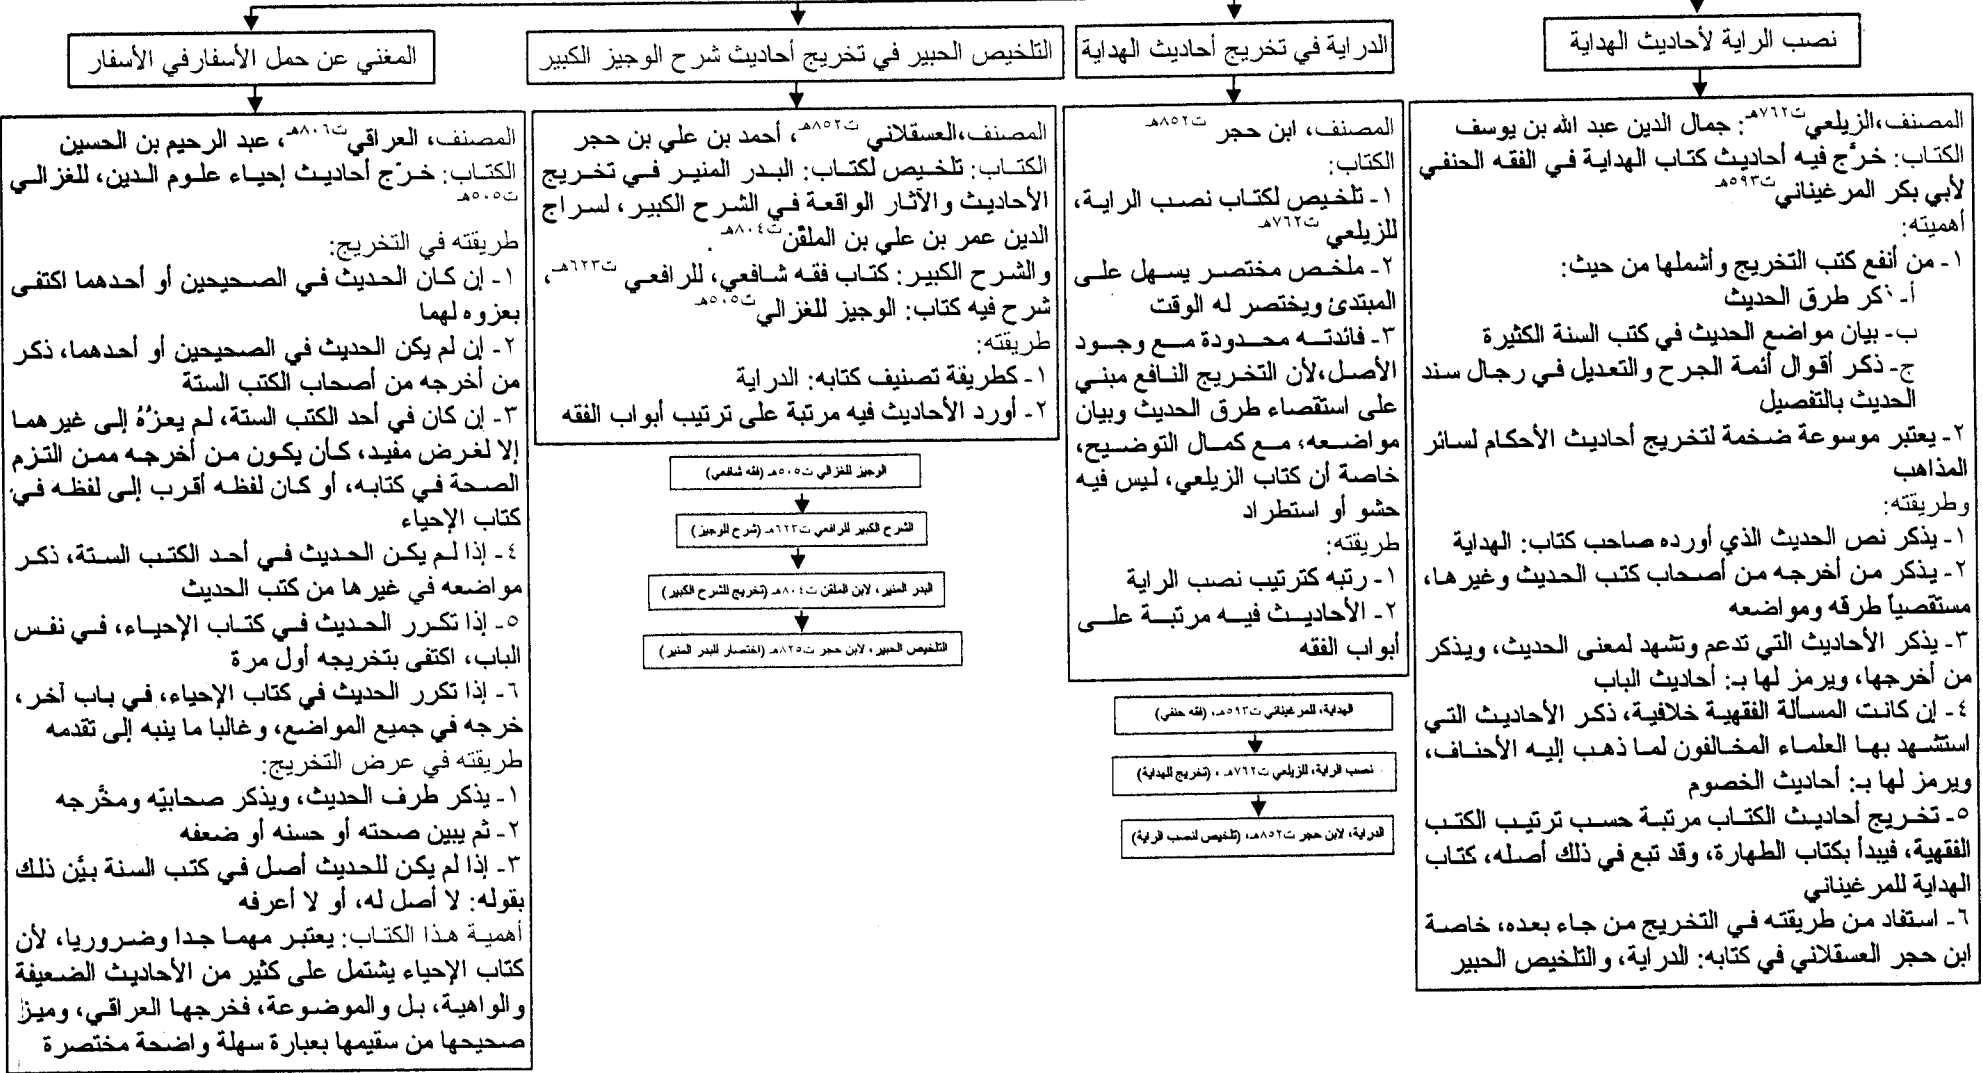 نصب الراية لأحاديث الهداية
المصنف،الزيلعي ت٧٦٢هـ: جمال الدين عبد الله بن يوسف
الكتاب: خرَّج فيه أحاديث كتاب الهداية في الفقه الحنفي
لأبي بكر المرغيناني ت٥٩٣هـ
أهميته:
١- من أنفع كتب التخريج وأشملها من حيث:
أ- ذكر طرق الحديث
ب- بيان مواضع الحديث في كتب السنة الكثيرة
ج- ذكر أقوال أئمة الجرح والتعديل في رجال سند
الحديث بالتفصيل
٢- يعتبر موسوعة ضخمة لتخريج أحاديث الأحكام لسائر
المذاهب
وطريقته:
١- يذكر نص الحديث الذي أورده صاحب كتاب: الهداية
٢- يذكر من أخرجه من أصحاب كتب الحديث وغيرها،
مستقصياً طرقه ومواضعه
٣- يذكر الأحاديث التي تدعم وتشهد لمعنى الحديث، ويذكر
من أخرجها، ويرمز لها بـ: أحاديث الباب
٤- إن كانت المسألة الفقهية خلافية، ذكر الأحاديث التي
استشهد بها العلماء المخالفون لما ذهب إليه الأحناف،
ويرمز لها بـ: أحاديث الخصوم
٥- تخريج أحاديث الكتاب مرتبة حسب ترتيب الكتب
الفقهية، فيبدأ بكتاب الطهارة، وقد تبع في ذلك أصله، كتاب
الهداية للمرغيناني
٦- استفاد من طريقته في التخريج من جاء بعده، خاصة
ابن حجر العسقلاني في كتابه: الدراية، والتلخيص الحبير
الدراية في تخريج أحاديث الهداية
المصنف، ابن حجر ت٨٥٢هـ
الكتاب:
١- تلخيص لكتاب نصب الراية،
للزيلعي ت٧٦٢هـ
٢- ملخص مختصر يسهل على
المبتدئ ويختصر له الوقت
٣- فائدته محدودة مع وجود
الأصل،لأن التخريج النافع مبني
على استقصاء طرق الحديث وبيان
مواضعه؛ مع كمال التوضيح،
خاصة أن كتاب الزيلعي، ليس فيه
حشو أو استطراد
طريقته:
١- رتبه كترتيب نصب الراية
٢- الأحاديث فيه مرتبة على
أبواب الفقه
الهداية، للمرغيناني ت٥٩٣هـ، (فقه حنفي)
نصب الراية، للزيلعي ت٧٦٢هـ، (تخريج للهداية)
الدراية، لابن حجر ت٨٥٢هـ، (تلخيص لنصب الراية)
التلخيص الحبير في تخريج أحاديث شرح الوجيز الكبير
المصنف،العسقلاني ت٨٥٢هـ، أحمد بن علي بن حجر
الكتاب: تلخيص لكتاب: البدر المنير في تخريج
الأحاديث والآثار الواقعة في الشرح الكبير، لسراج
الدين عمر بن علي بن الملقّن ت٨٠٤هـ.
والشرح الكبير: كتاب فقه شافعي، للرافعي ت٦٢٣هـ،
شرح فيه كتاب: الوجيز للغزالي ت٥٠٥هـ
طريقته:
١- كطريقة تصنيف كتابه: الدراية
٢- أورد الأحاديث فيه مرتبة على ترتيب أبواب الفقه
الوجيز للغزالي ت٥٠٥هـ (فقه شافعي)
الشرح الكبير للرافعي ت٦٢٣هـ (شرح للوجيز)
البدر المنير، لابن الملقن ت٨٠٤هـ (تخريج للشرح الكبير)
التلخيص الحبير، لابن حجر ت٨٢٥هـ (اختصار للبدر المنير)
المغني عن حمل الأسفارفي الأسفار
المصنف، العراقي ت٨٠٦هـ، عبد الرحيم بن الحسين
الكتاب: خرّج أحاديث إحياء علوم الدين، للغزالي
ت٥٠٥هـ
طريقته في التخريج:
١- إن كان الحديث في الصحيحين أو أحدهما اكتفى
بعزوه لهما
٢- إن لم يكن الحديث في الصحيحين أو أحدهما، ذكر
من أخرجه من أصحاب الكتب الستة
٣- إن كان في أحد الكتب الستة، لم يعزُهُ إلى غيرهما
إلا لغرض مفيد، كأن يكون من أخرجه ممن التزم
الصحة في كتابه، أو كان لفظه أقرب إلى لفظه في
كتاب الإحياء
٤- إذا لم يكن الحديث في أحد الكتب الستة، ذكر
مواضعه في غيرها من كتب الحديث
٥- إذا تكرر الحديث في كتاب الإحياء، في نفس
الباب، اكتفى بتخريجه أول مرة
٦- إذا تكرر الحديث في كتاب الإحياء، في باب آخر،
خرجه في جميع المواضع، وغالبا ما ينبه إلى تقدمه
طريقته في عرض التخريج:
١- يذكر طرف الحديث، ويذكر صحابيّه ومخَّرجه
٢- ثم يبين صحته أو حسنه أو ضعفه
٣- إذا لم يكن للحديث أصل في كتب السنة بيَّن ذلك
بقوله: لا أصل له، أو لا أعرفه
أهمية هذا الكتاب: يعتبر مهما جدا وضروريا، لأن
كتاب الإحياء يشتمل على كثير من الأحاديث الضعيفة
والواهية، بل والموضوعة، فخرجها العراقي، وميز
صحيحها من سقيمها بعبارة سهلة واضحة مختصرة